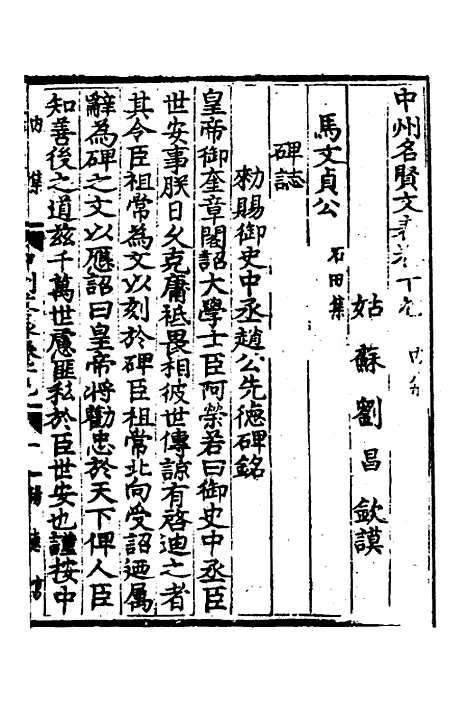 中州名賢文表卷十九 内集
姑蘇劉昌欽謨
馬文貞公 石田集
碑誌
勑賜御史中丞趙公先德碑銘
皇帝御奎章閣詔大學士臣阿榮若曰御史中丞臣
世安事朕日久克庸祗畏相彼世傳諒有啓迪之者
其令臣祖常為文以刻於碑臣祖常北向受詔迺屬
辭為碑之文以應詔曰皇帝將勸忠於天下俾人臣
知善後之道玆千萬世慮匪私於臣世安也謹按中